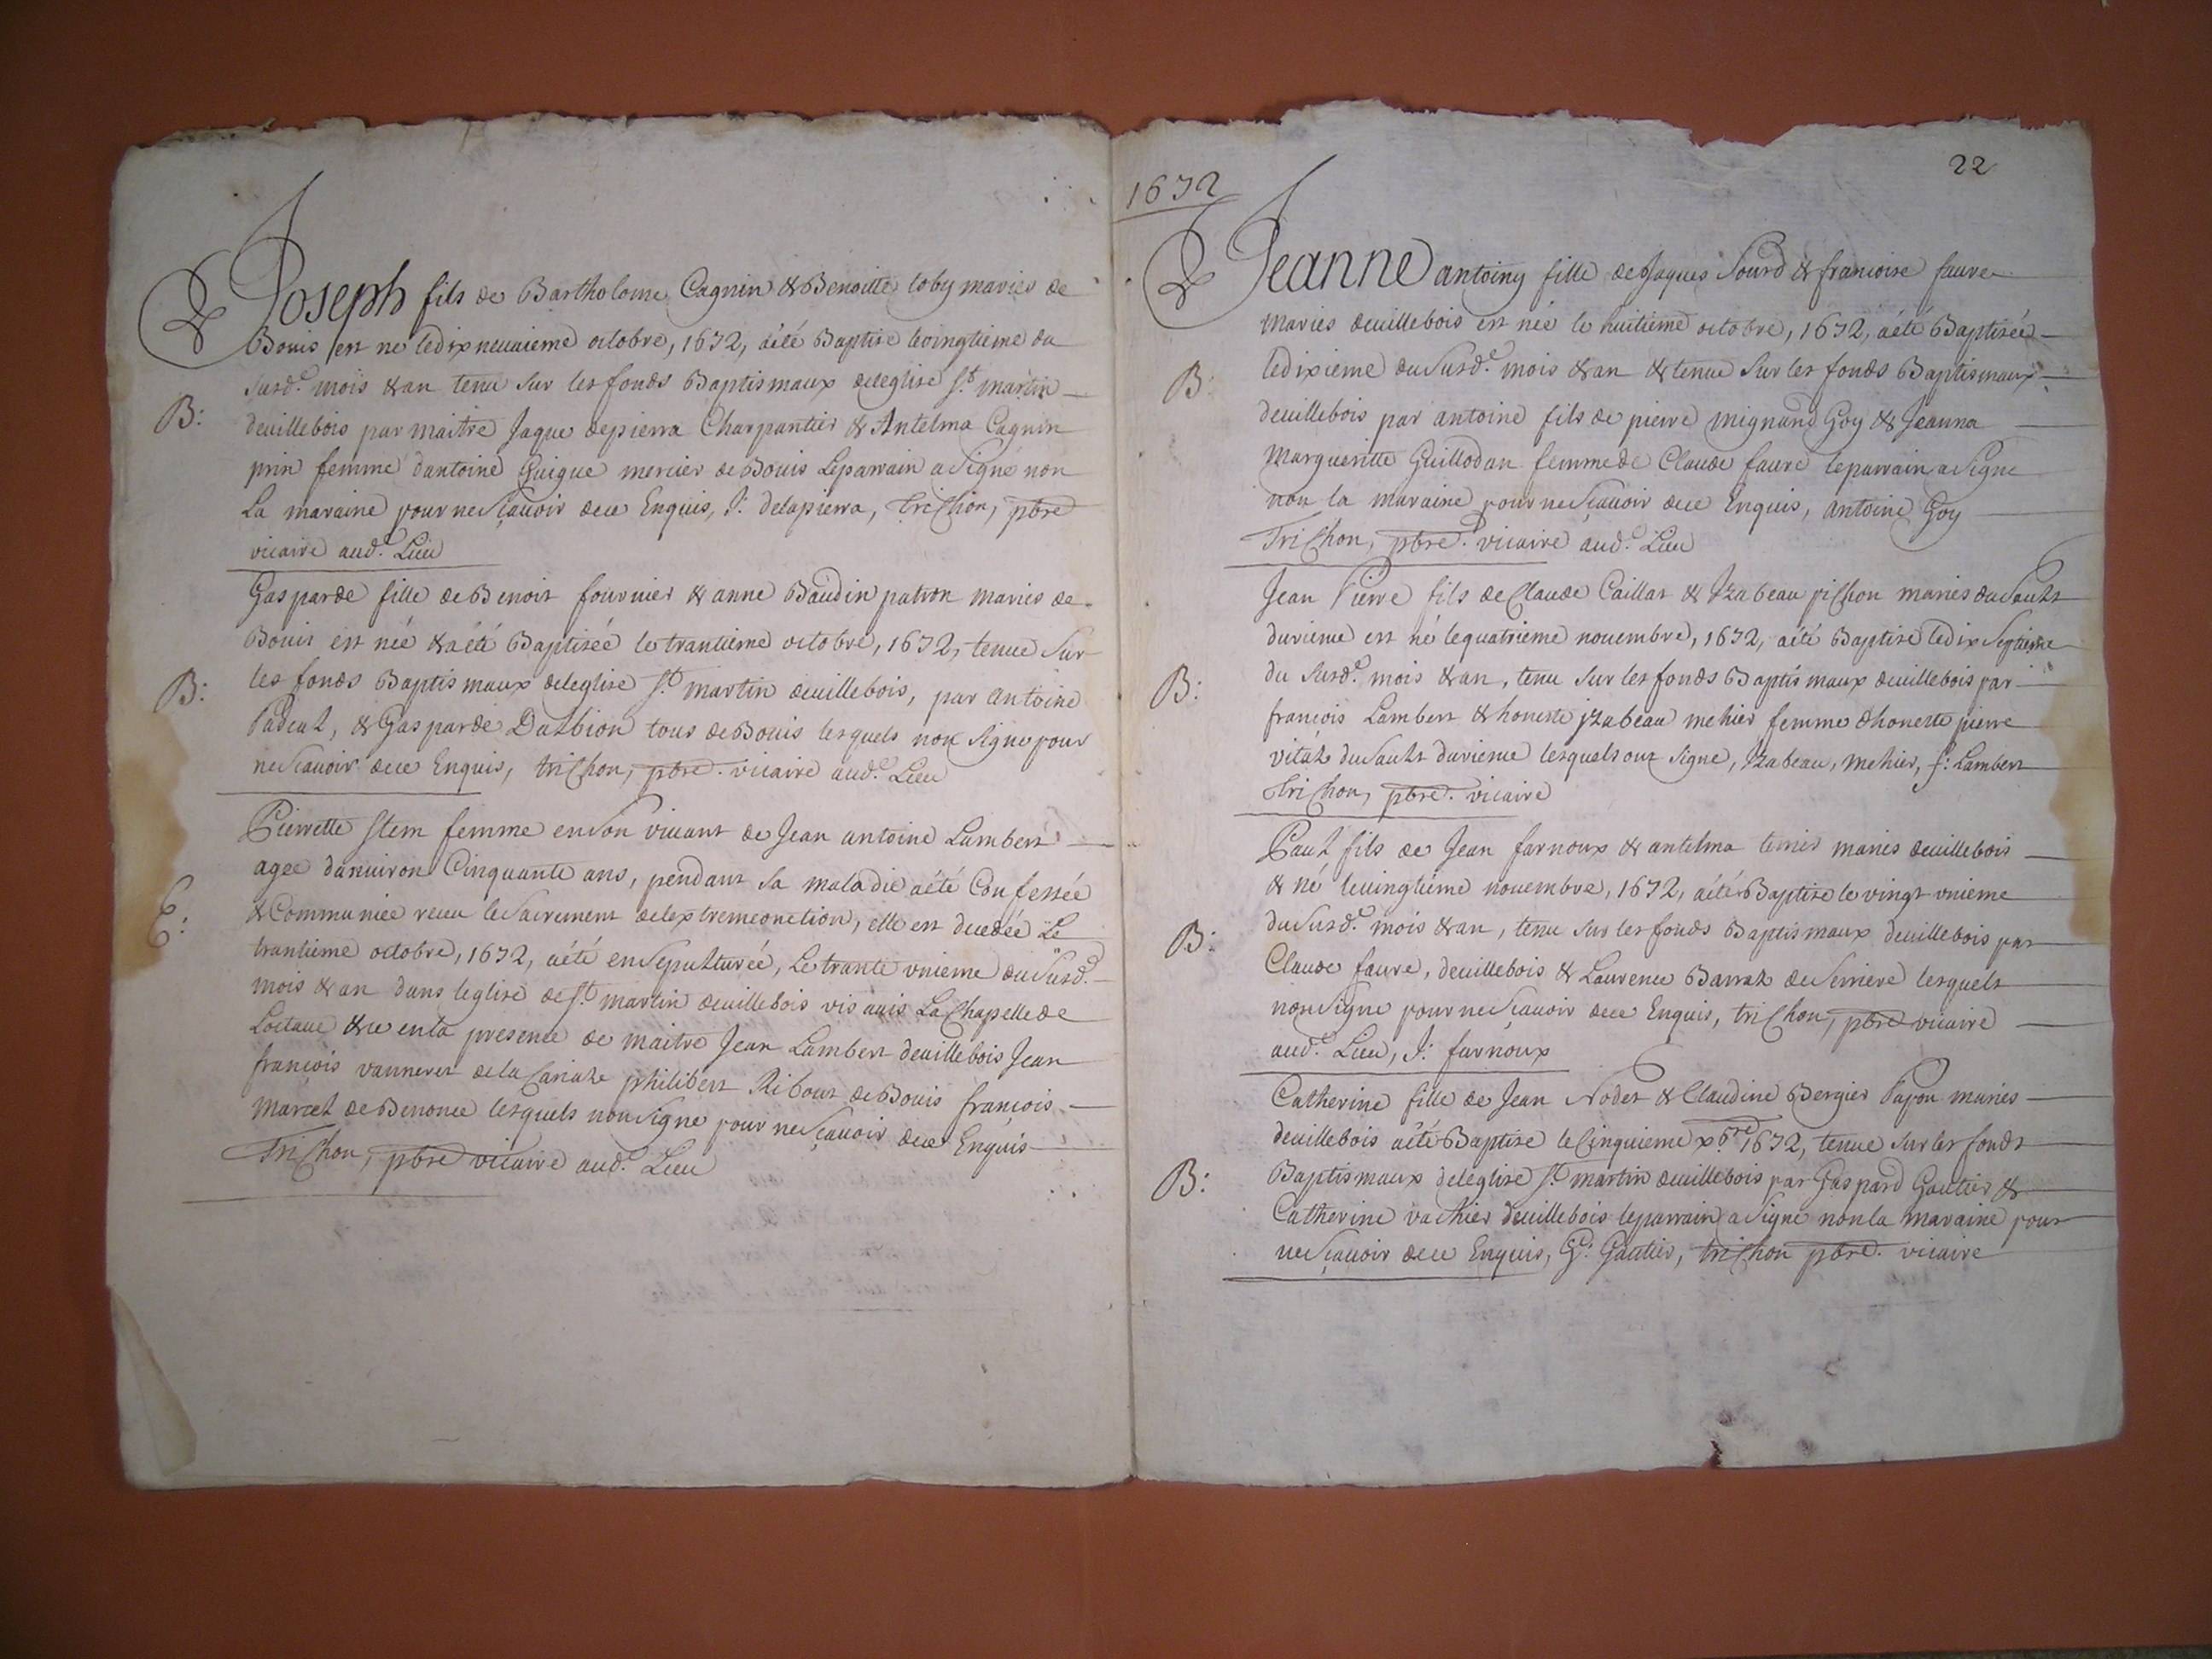 Joseph fils de Bartholome Cagnin & Benoitte loby maries de
Bouis est ne le dix neuuieme octobre, 1672, aété Baptise le vingtieme du
susd.e mois & an tenu sur les fonds Baptismaux deleglise S.t martin
B: deuillebois par maitre Jaque depierra Charpantier & Antelma Cagnin
prin femme dantoine Guigue mercier de Bouis Leparrain a signé non
La maraine pour ne sçauoir de ce Enquis, J: delapierra, trichon, pbre
vicaire aud.e Lieu
Gasparde fille de Benoit fournier & anne Baudin patron maries de
Bouis est née & aété Baptizée le trantieme octobre, 1672, tenue sur
B: les fonds Baptismaux deleglise S.t martin deuillebois, par antoine
& Gasparde Dalbion tous de Bouis lesquels non signe pour
ne sçauoir de ce Enquis, trichon, pbre. vicaire aud.e Lieu
Pierrette Stem femme en son viuant de Jean antoine Lambert
agee danuiron Cinquante ans, pendant sa maladie aété Confessée
E: & Communiee receu le sacrement delextremeonction, elle est decedée Le
trantieme octobre, 1672, aété ensepulturéé, Le trante vnieme du susd.e
mois & an dans leglise de S.t martin deuillebois vis auis La Chapelle de
Loctaue & ce en la presence de maitre Jean Lambert deuillebois Jean
françois vanneret de la philibert Ribout de Bouis françois
marcel de Benonce lesquels non signe pour ne sçauoir de ce Enquis
Trichon, pbre vicaire aud.e Lieu
1672
22
Jeanne antoiny fille de Jaques Sourd & francoise faure
maries deuillebois est née le huitieme octobre, 1672, aété Baptizée
B: ledixieme du susd.e mois & an & tenue sur les fonds Baptismaux
deuillebois par antoine fils de pierre mignand Goy & Jeanna
margueritte Guillodan femme de Claude faure leparrain a signe
non la maraine pour ne sçauoir de ce Enquis, antoine Goy
Trichon, pbre. vicaire aud.e Lieu
Jean Pierre fils de Claude Caillat & Izabeau pichon maries du Sault
durieme est né le quatrieme nouembre, 1672, aété Baptise le dix septieme
B: du susd.e mois & an, tenu sur les fonds Baptismaux deuillebois par
françois Lambert & honeste jzabeau mehier femme dhoneste pierre
vital du Sault durieme lesquels ont signe, Izabeau, mehier, f: Lambert
trichon, pbre. vicaire
Paul fils de Jean farnoux & antelma maries deuillebois
& né levingtieme nouembre, 1672, aété Baptise le vingt vnieme
B: du susd.e mois & an, tenu sur les fonds Baptismaux deuillebois par
Claude faure, deuillebois & Laurence Barral de Serriere lesquels
non signe pour ne sçauoir de ce Enquis, trichon, pbre vicaire
aud.e Lieu, J: farnoux
Catherine fille de Jean Nodet & Claudine Bergier Papon maries
deuillebois aété Baptise le Cinquieme xbre 1672, tenue sur les fonds
B: Baptismaux deleglise S.t martin deuillebois par Gaspard Gautier &
Catherine vachier deuillebois leparrain a signe non la maraine pour
ne sçauoir de ce Enquis, G.d: Gautier, trichon pbre. vicaire